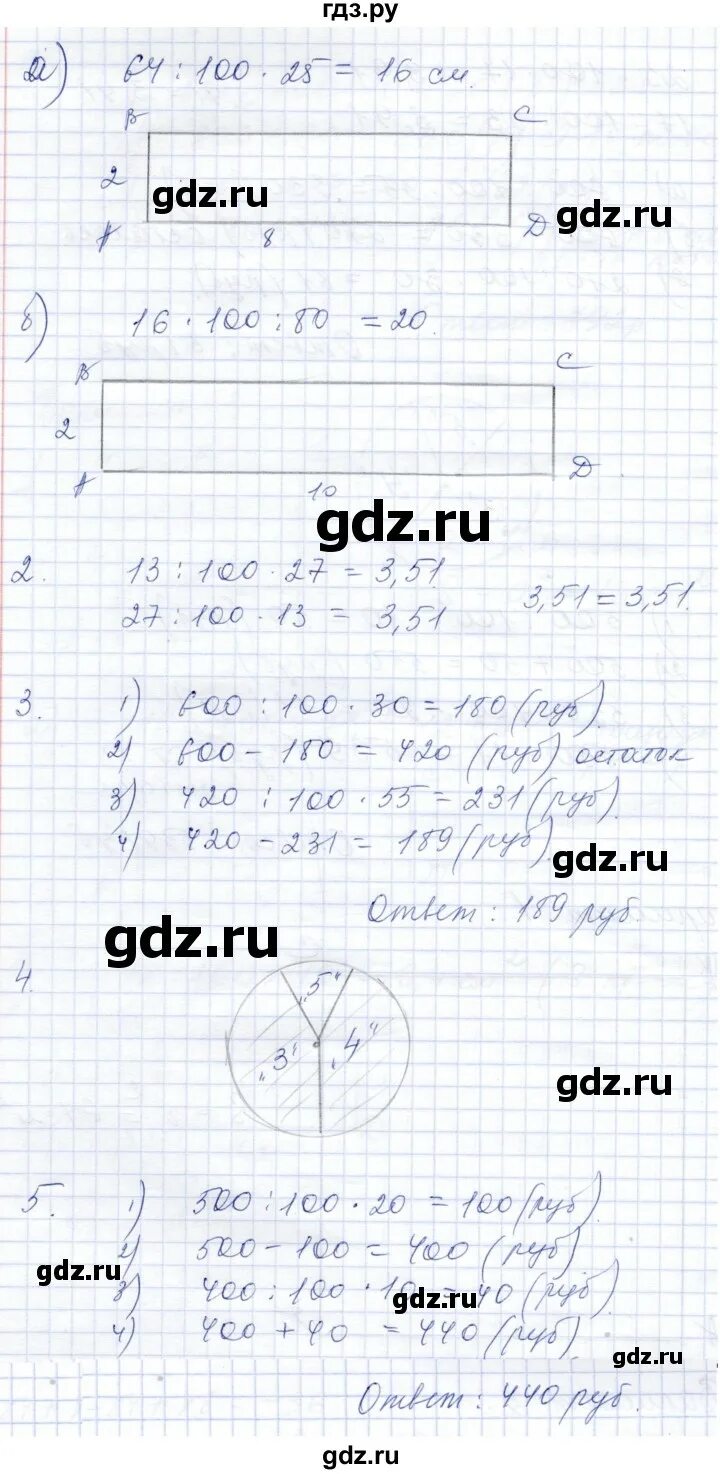 гдз.ру
а) 64 : 100 · 25 = 16 см.
B C
2
gdz.ru
gdz.ru
A 8 D
б) 16 · 100 : 80 = 20.
B C
2
A 10 D
gdz.ru
2. 13 : 100 · 27 = 3,51
27 : 100 · 13 = 3,51
3,51 = 3,51.
3. 1) 600 : 100 · 30 = 180 (руб).
2) 600 - 180 = 420 (руб) остаток
3) 420 : 100 · 55 = 231 (руб).
4) 420 - 231 = 189 (руб)
gdz.ru
Ответ : 189 руб
gdz.ru
4.
„5“
„3“ „4“
gdz.ru
5. 1) 500 : 100 · 20 = 100 (руб)
2) 500 - 100 = 400 (руб)
gdz.ru
3) 400 : 100 · 10 = 40 (руб).
gdz.ru
4) 400 + 40 = 440 (руб).
gdz.ru
Ответ : 440 руб.
gdz.ru